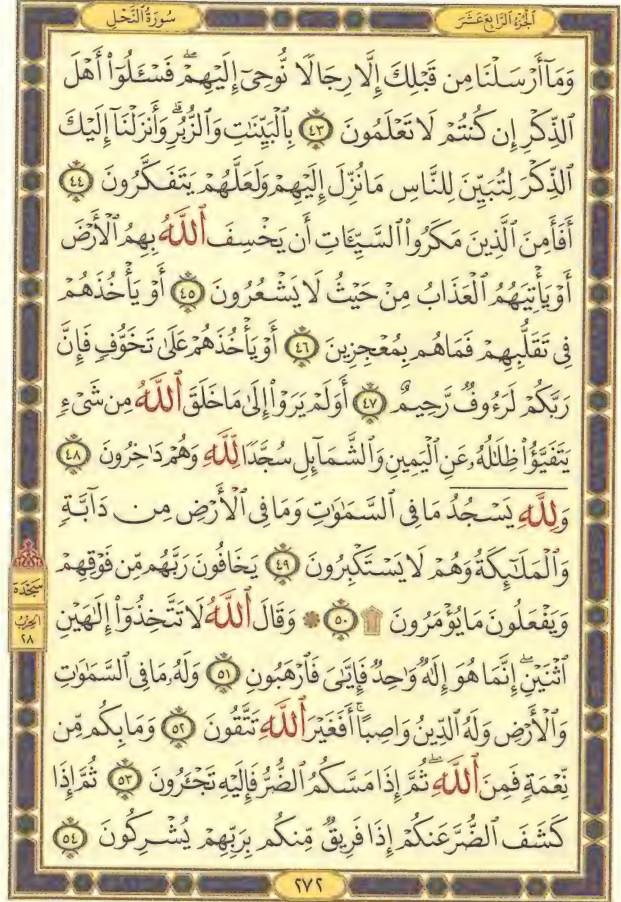 الجزء الرابع عشر
سورة النحل
وَمَآ أَرۡسَلۡنَا مِن قَبۡلِكَ إِلَّا رِجَالٗا نُّوحِيٓ إِلَيۡهِمۡۖ فَسۡـَٔلُوٓاْ أَهۡلَ
ٱلذِّكۡرِ إِن كُنتُمۡ لَا تَعۡلَمُونَ ٤٣ بِٱلۡبَيِّنَٰتِ وَٱلزُّبُرِۗ وَأَنزَلۡنَآ إِلَيۡكَ
ٱلذِّكۡرَ لِتُبَيِّنَ لِلنَّاسِ مَا نُزِّلَ إِلَيۡهِمۡ وَلَعَلَّهُمۡ يَتَفَكَّرُونَ ٤٤
أَفَأَمِنَ ٱلَّذِينَ مَكَرُواْ ٱلسَّيِّـَٔاتِ أَن يَخۡسِفَ ٱللَّهُ بِهِمُ ٱلۡأَرۡضَ
أَوۡ يَأۡتِيَهُمُ ٱلۡعَذَابُ مِنۡ حَيۡثُ لَا يَشۡعُرُونَ ٤٥ أَوۡ يَأۡخُذَهُمۡ
فِي تَقَلُّبِهِمۡ فَمَا هُم بِمُعۡجِزِينَ ٤٦ أَوۡ يَأۡخُذَهُمۡ عَلَىٰ تَخَوُّفٖ فَإِنَّ
رَبَّكُمۡ لَرَءُوفٞ رَّحِيمٌ ٤٧ أَوَلَمۡ يَرَوۡاْ إِلَىٰ مَا خَلَقَ ٱللَّهُ مِن شَيۡءٖ
يَتَفَيَّؤُاْ ظِلَٰلُهُۥ عَنِ ٱلۡيَمِينِ وَٱلشَّمَآئِلِ سُجَّدٗا لِّلَّهِ وَهُمۡ دَٰخِرُونَ ٤٨
وَلِلَّهِ يَسۡجُدُۤ مَا فِي ٱلسَّمَٰوَٰتِ وَمَا فِي ٱلۡأَرۡضِ مِن دَآبَّةٖ
وَٱلۡمَلَٰٓئِكَةُ وَهُمۡ لَا يَسۡتَكۡبِرُونَ ٤٩ يَخَافُونَ رَبَّهُم مِّن فَوۡقِهِمۡ
وَيَفۡعَلُونَ مَا يُؤۡمَرُونَ ۩ ٥٠ ۞ وَقَالَ ٱللَّهُ لَا تَتَّخِذُوٓاْ إِلَٰهَيۡنِ
ٱثۡنَيۡنِۖ إِنَّمَا هُوَ إِلَٰهٞ وَٰحِدٞ فَإِيَّٰيَ فَٱرۡهَبُونِ ٥١ وَلَهُۥ مَا فِي ٱلسَّمَٰوَٰتِ
وَٱلۡأَرۡضِ وَلَهُ ٱلدِّينُ وَاصِبًاۚ أَفَغَيۡرَ ٱللَّهِ تَتَّقُونَ ٥٢ وَمَا بِكُم مِّن
نِّعۡمَةٖ فَمِنَ ٱللَّهِۖ ثُمَّ إِذَا مَسَّكُمُ ٱلضُّرُّ فَإِلَيۡهِ تَجۡـَٔرُونَ ٥٣ ثُمَّ إِذَا
كَشَفَ ٱلضُّرَّ عَنكُمۡ إِذَا فَرِيقٞ مِّنكُم بِرَبِّهِمۡ يُشۡرِكُونَ ٥٤
سجدة
الحزب
٢٨
٢٧٢